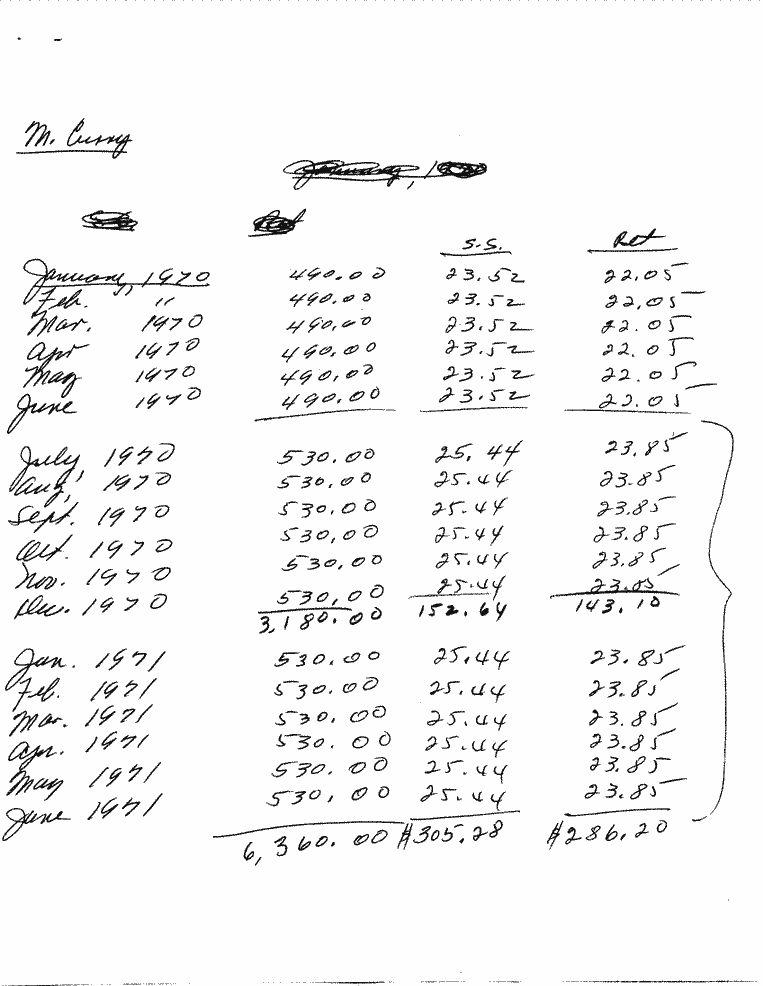 M. Curry
S.S. Ret
January, 1970 490.00 23.52 22.05
Feb. " 490.00 23.52 22.05
Mar. 1970 490.00 23.52 22.05
Apr 1970 490.00 23.52 22.05
May 1970 490.00 23.52 22.05
June 1970 490.00 23.52 22.05
July, 1970 530.00 25.44 23.85
Aug, 1970 530.00 25.44 23.85
Sept. 1970 530.00 25.44 23.85
Oct. 1970 530.00 25.44 23.85
Nov. 1970 530.00 25.44 23.85
Dec. 1970 530.00 25.44 23.85
3,180.00 152.64 143.10
Jan. 1971 530.00 25.44 23.85
Feb. 1971 530.00 25.44 23.85
Mar. 1971 530.00 25.44 23.85
Apr. 1971 530.00 25.44 23.85
May 1971 530.00 25.44 23.85
June 1971 530.00 25.44 23.85
6,360.00 $305.28 $286.20